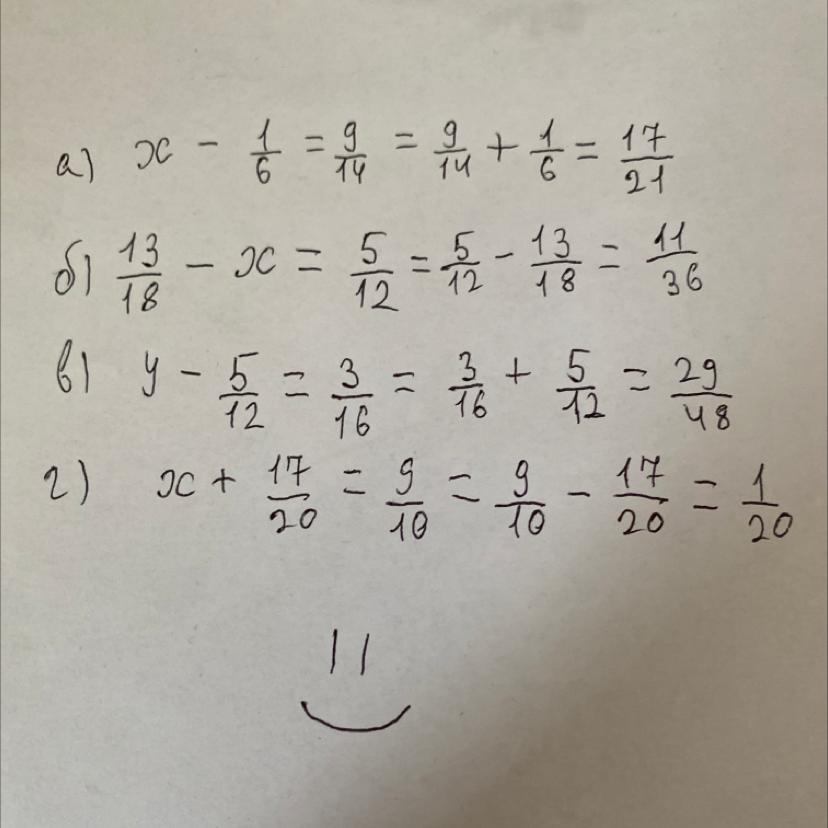 а) x - 1/6 = 9/14 = 9/14 + 1/6 = 17/21
б) 13/18 - x = 5/12 = 5/12 - 13/18 = 11/36
в) y - 5/12 = 3/16 = 3/16 + 5/12 = 29/48
г) x + 17/20 = 9/10 = 9/10 - 17/20 = 1/20